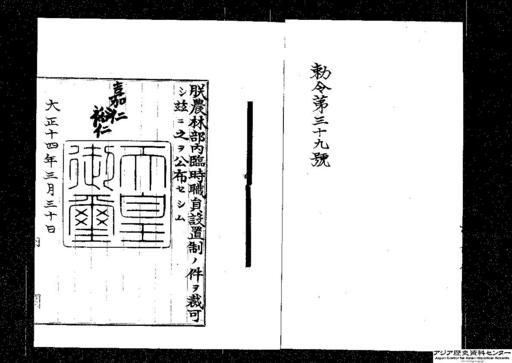 勅令第三十九號
朕農林部内臨時職員設置制ノ件ヲ裁可
シ玆ニ之ヲ公布セシム
嘉仁
裕仁
天皇
御璽
大正十四年三月三十日
アジア歴史資料センター
Japan Center for Asian Historical Records